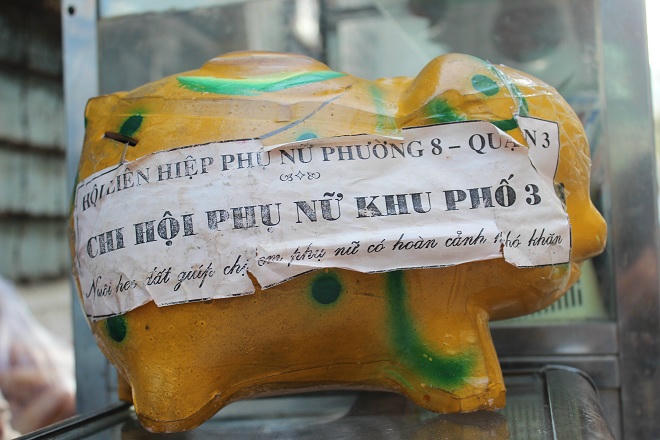 HỘI LIÊN HIỆP PHỤ NỮ PHƯỜNG 8 - QUẬN 3
CHI HỘI PHỤ NỮ KHU PHỐ 3
Nuôi heo đất giúp chị em phụ nữ có hoàn cảnh khó khăn